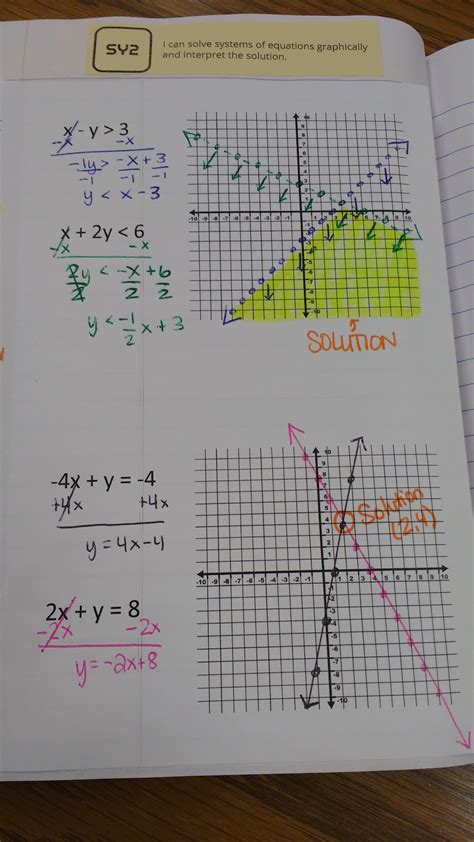 SY2
I can solve systems of equations graphically
and interpret the solution.
x - y > 3
-x -x
-1y > -x + 3
-1 -1 -1
y < x - 3
x + 2y < 6
-x -x
2y < -x + 6
2 2 2
y < -1/2 x + 3
SOLUTION
-4x + y = -4
+4x +4x
y = 4x-4
2x + y = 8
-2x -2x
y = -2x+8
Solution
(2,4)